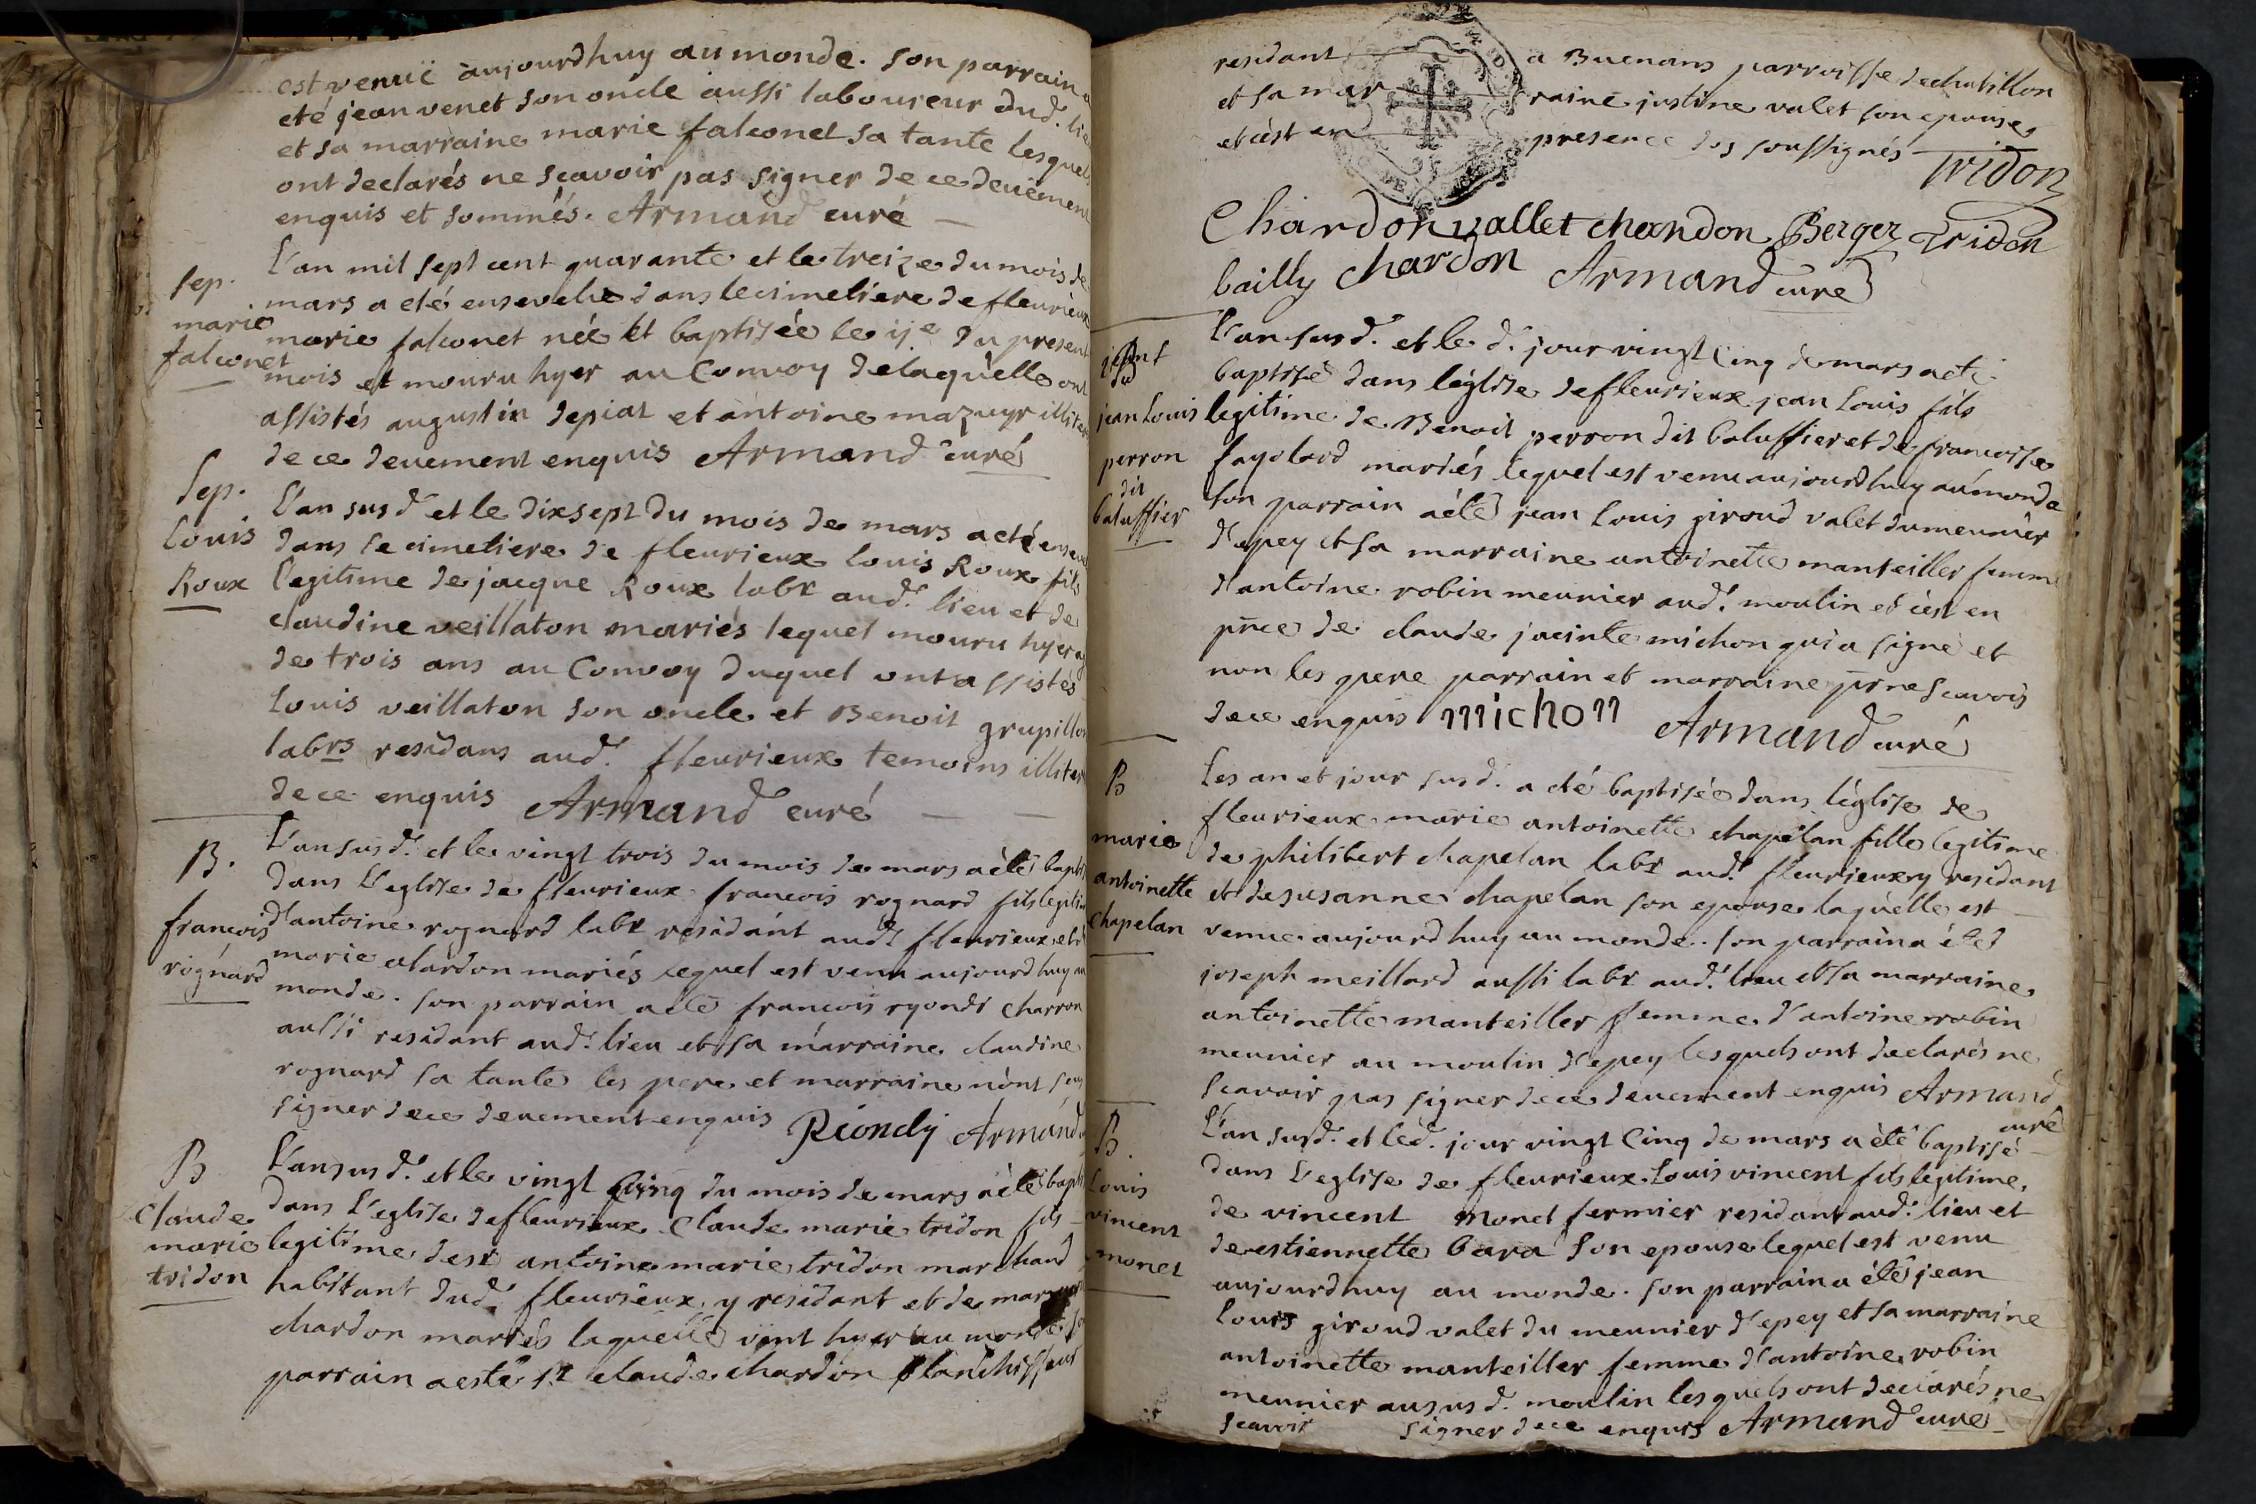 est venuë aujourdhuy au monde. son parrain a
eté jean venet son oncle aussi laboureur dud. lieu
et sa marraine marie falconet sa tante lesquels
ont declarés ne scavoir pas signer de ce deuëment
enquis et sommés. Armand curé
Sep.
marie
falconet
L'an mil sept cent quarante et le treize du mois de
mars a eté ensevelie dans le cimetiere de fleurieux
marie falconet née et baptisée le ije du present
mois et mouru hyer au Convoy de laquelle ont
assistés augustin depiat et antoine mazuyr illiter
de ce deuement enquis Armand curé
Sep.
Louis
Roux
L'an susd. et le dixsept du mois de mars a eté enseve
dans le cimetiere de fleurieux Louis Roux fils
legitime de jacque Roux labr aud. lieu et de
claudine veillaton mariés lequel mouru hyer ag
de trois ans au Convoy duquel ont assistés
Louis veillaton son oncle et Benoit grupillon
labrs residans aud. fleurieux temoins illiter
de ce enquis Armand curé
B.
francois
rognard
L'an susd. et le vingt trois du mois de mars a eté bapti
dans L'eglise de fleurieux francois rognard fils legitim
d'antoine rognard labr residant audt fleurieux et de
marie alardon mariés lequel est venu aujourdhuy au
monde. son parrain a eté francois ryondi charron
aussi residant aud. lieu et sa marraine claudine
rognard sa tante les pere et marraine n'ont sceu
signer de ce deuement enquis Riondy Armand
B
Claude
marie
tridon
L'an susd. et le vingt cinq du mois de mars a eté bapti
dans L'eglise de fleurieux Claude marie tridon fils
legitime de sr antoine marie tridon marchand
habitant dud. fleurieux y residant et de
chardon mariés laquelle vint hyer au monde so
parrain a esté sr claude chardon blanchisseur
residant a Buenans parroisse de chatillon
et sa marraine justine valet son epouse
et c'est en presence des soussignés Tridon
Chardon vallet chardon Berger Tridon
bailly chardon Armand curé
jean Louis
perron
dit
baluffier
L'an susd. et le d. jour vingt cinq de mars a eté
baptisé dans l'église de fleurieux jean Louis fils
legitime de Benoit perron dit baluffier et de francoise
fayolard mariés lequel est venu aujourdhuy au monde
son parrain a eté jean Louis giroud valet du meunier
d'epey et sa marraine antoinette manteiller femme
d'antoine robin meunier aud. moulin et c'est en
pnce de claude jacinte michon qui a signé et
non les pere parrain et marraine pr ne scavoir
de ce enquis michon Armand curé
B
marie
antoinette
chapelan
Les an et jour susd. a eté baptisée dans l'église de
fleurieux marie antoinette chapelan fille legitime
de philibert chapelan labr aud. fleurieux y residant
et de susanne chapelan son epouse laquelle est
venue aujourdhuy au monde. son parrain a eté
joseph meillard aussi labr aud. lieu et sa marraine
antoinette manteiller femme d'antoine robin
meunier au moulin d'epey lesquels ont declarés ne
scavoir pas signer de ce deuement enquis Armand
curé
B.
Louis
vincent
monet
L'an susd. et led. jour vingt cinq de mars a eté baptisé
dans L'eglise de fleurieux Louis vincent fils legitime
de vincent monet fermier residant aud. lieu et
de estiennette bara son epouse lequel est venu
aujourdhuy au monde. son parrain a eté jean
Louis giroud valet du meunier d'epey et sa marraine
antoinette manteiller femme d'antoine robin
meunier au susd. moulin lesquels ont declarés ne
scavoir signer de ce enquis Armand curé